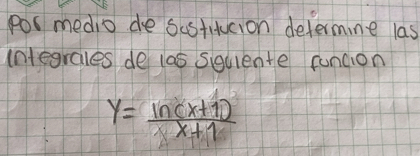 por medio de sustitucion determine las
integrales de las siguiente funcion
Y = ln(x+1)
x+1